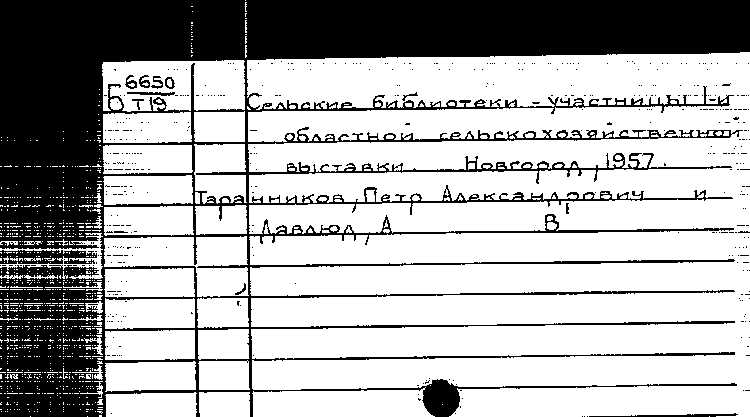 Б 6650
Т19
Сельские библиотеки - участницы 1-й
областной сельскохозяйственной
выставки. Новгород, 1957.
Таранников, Петр Александрович и
Давлюд, А В